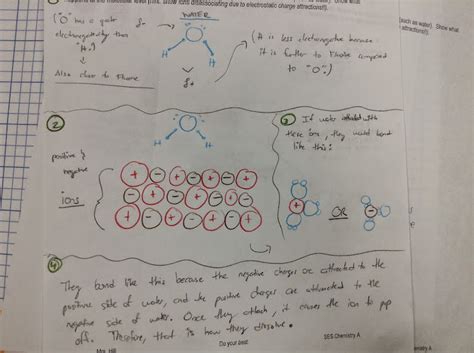 happens at the molecular level (hint: show ions disassociating due to electrostatic charge attractions!!).
such as water). Show what
attractions!!).
WATER
("O" has a greater
electronegativity than
"H.")
Also closer to Fluorine
δ-
O
H
H
δ+
(H is less electronegative because
it is further to Fluorine compared
to "O".)
2
positive &
negative
ions
O
H
H
+ - + + - + -
- + - + - + -
+ - + - + - +
3 If water interacted with
these ions, they would bond
like this:
+
OR
-
4
They bond like this because the negative charges are attracted to the
positive side of water, and the positive charges are attracted to the
negative side of water. Once they attach, it causes the ion to pop
off. Therefore, that is how they dissolve.
Mrs. Hill
Do your best
SES Chemistry A
emistry A